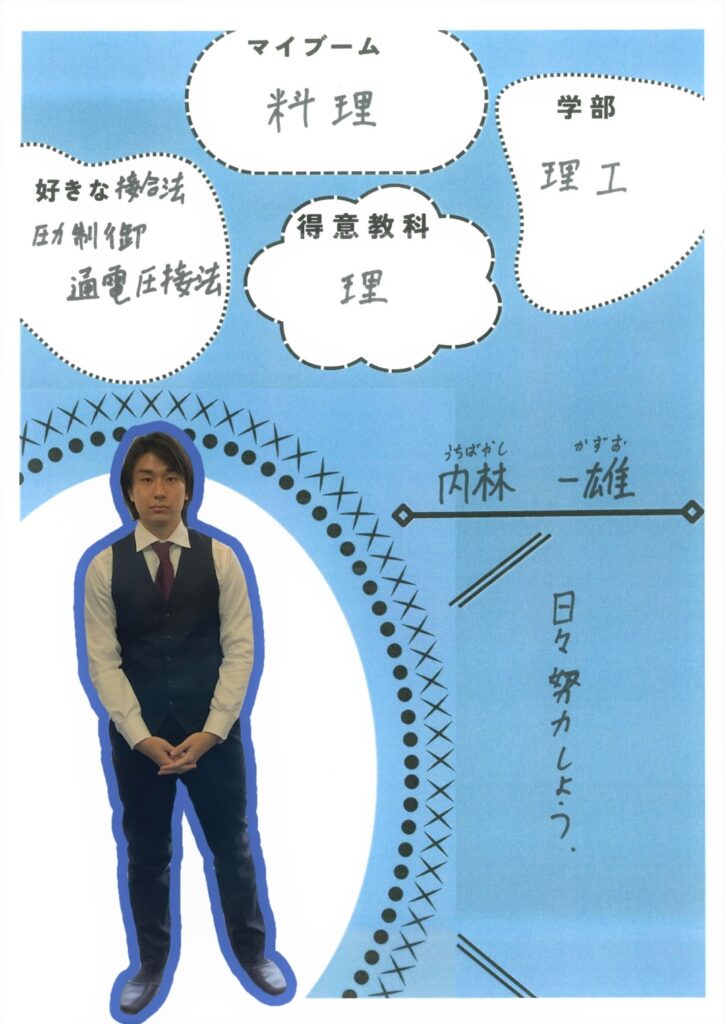 マイブーム
料理
学部
理工
好きな接合法
圧力制御
通電圧接法
得意教科
理
うちばかし かずお
内林 一雄
日々努力しよう.